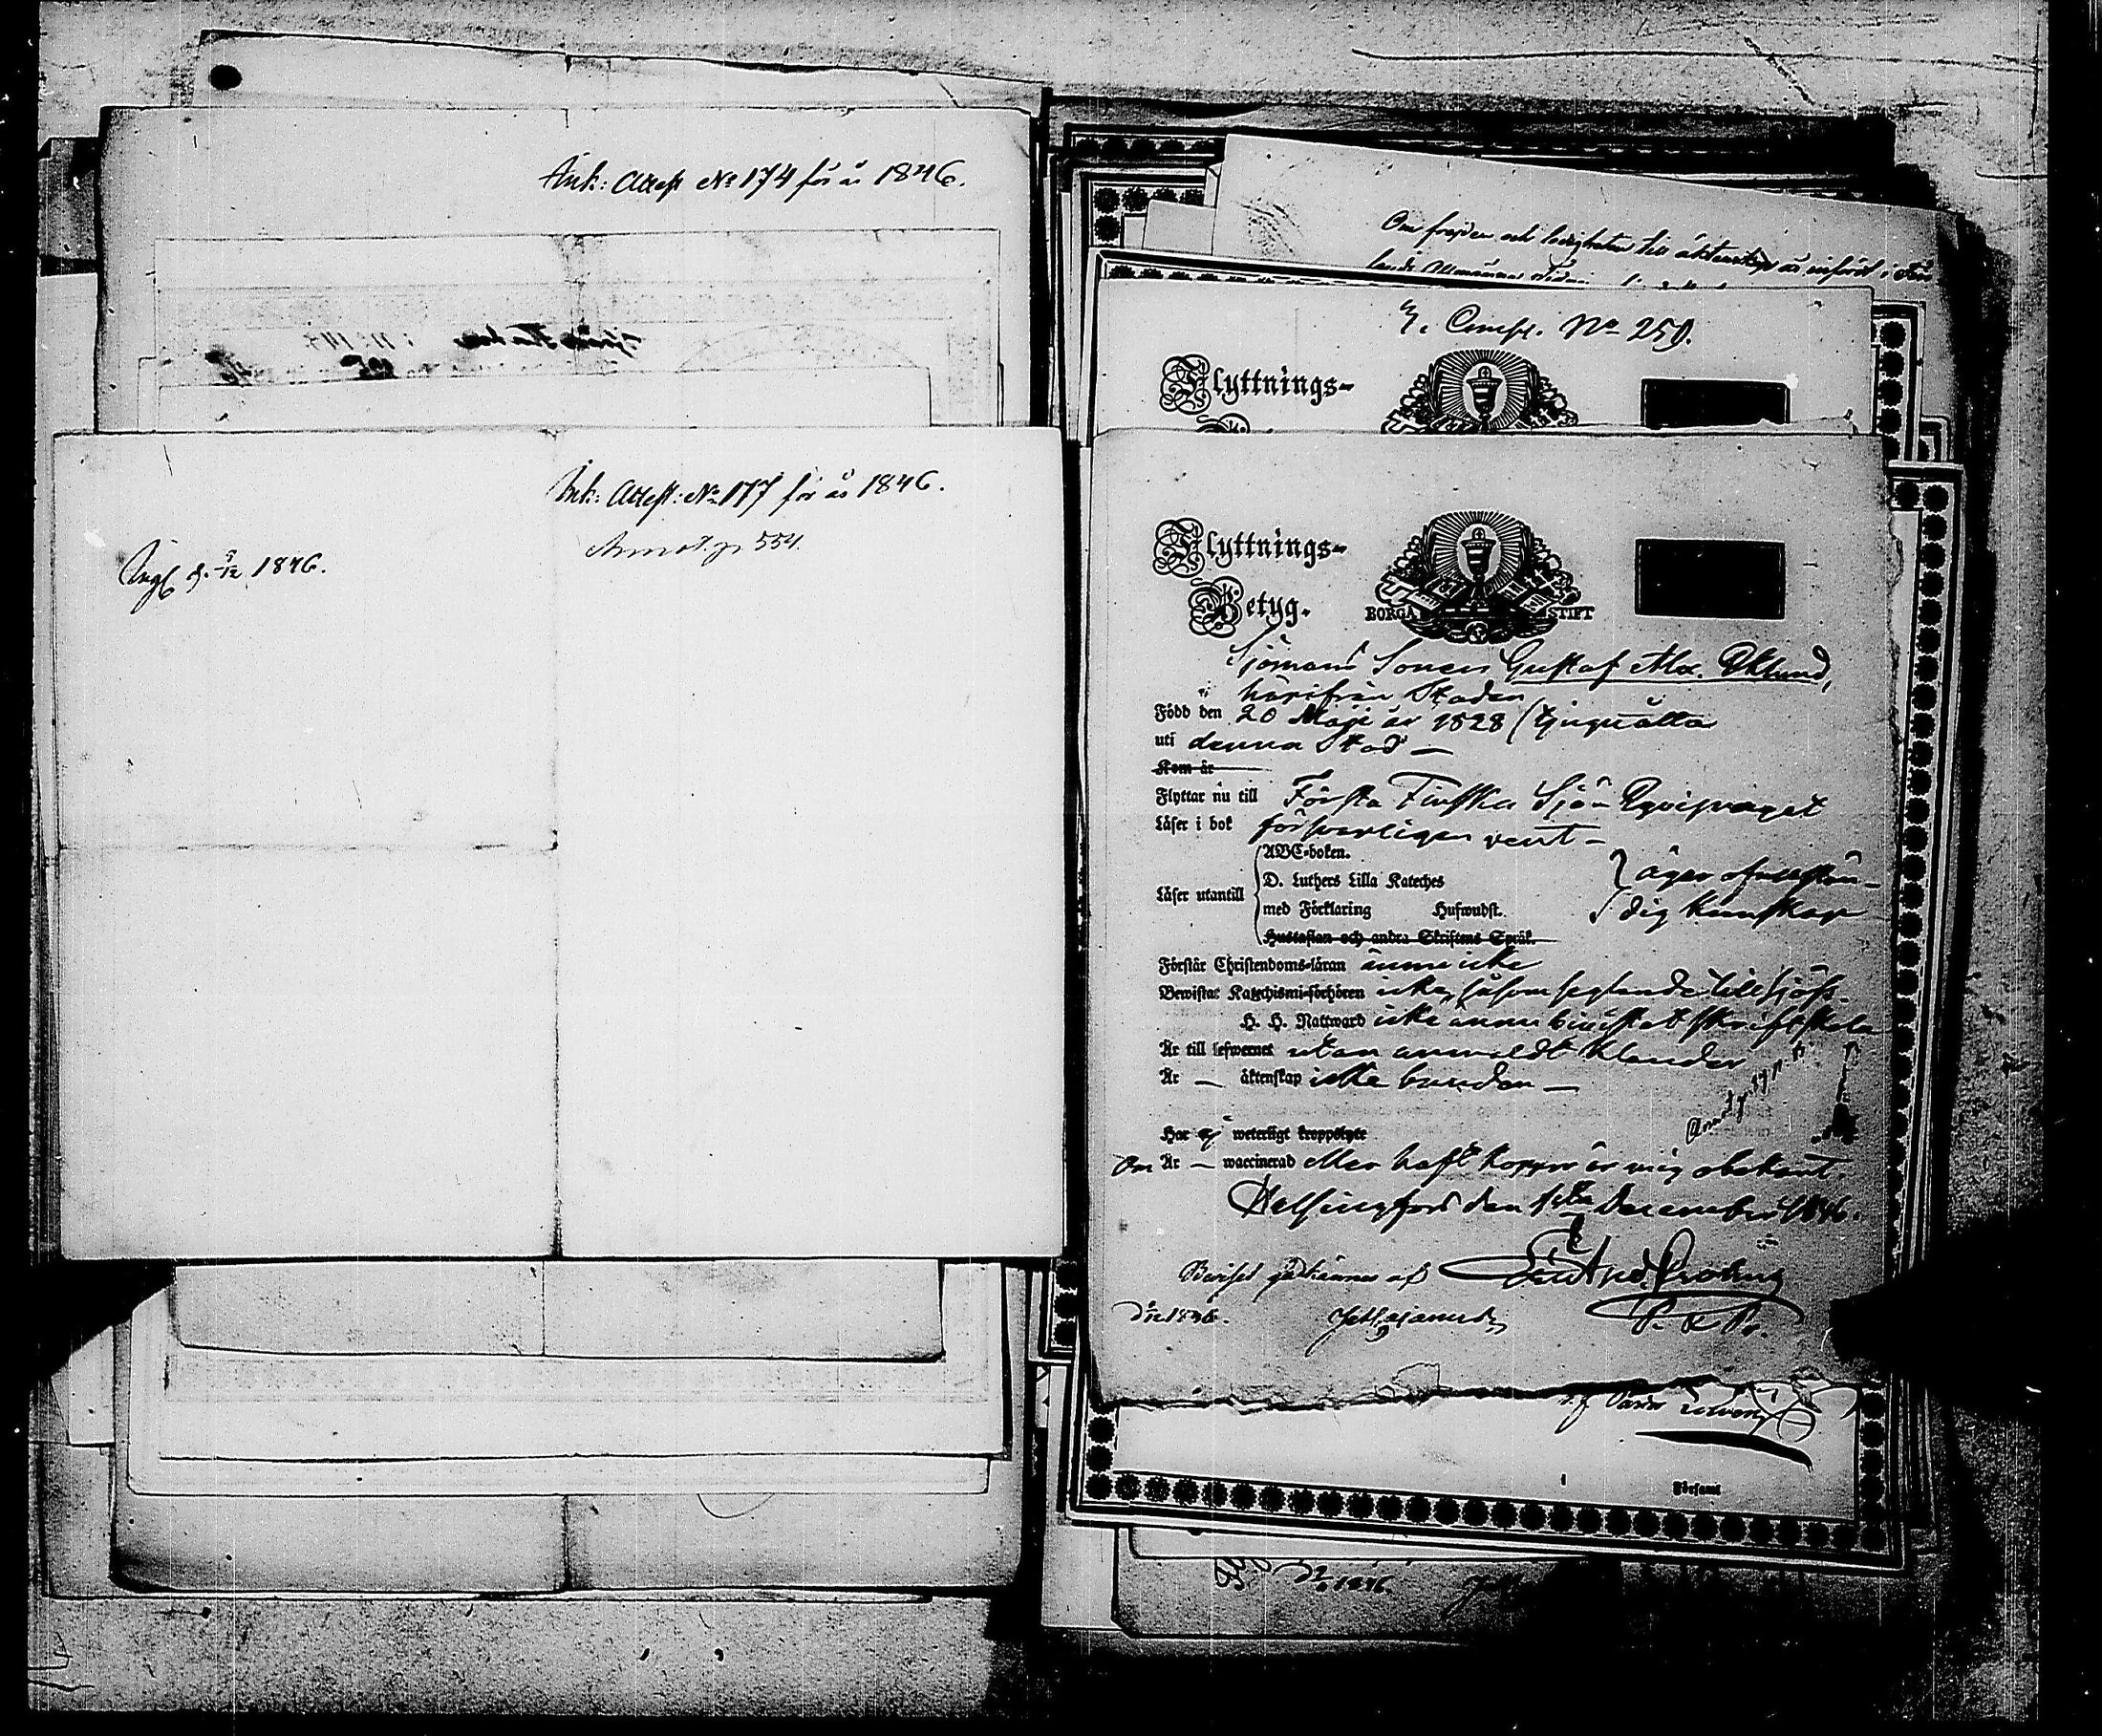 Ank: Attest No 174 för år 1846.
Ank: Attest: No 177 för år 1846.
Annot. p 554.
Ingl. d. 5/12 1846.
Om frejden och ledigheten till äktenskap är infördt i
lands Allmänna Tidning
No 259.
Flyttnings-
Flyttnings-
Betyg.
BORGÅ STIFT
Sjömans Sonen Gustaf Alex. Eklund,
härifrån Staden
Född den 20 Maji år 1828 (tjuguåtta
uti denna Stad —
Kom år
Flyttar nu till Första Finska Sjö-Eqvipaget
Läser i bok försvarligen rent —
ABC-boken.
Läser utantill D. Luthers Lilla Kateches äger ofullstän-
med Förklaring Hufwudst. dig kunskap
Hustaflan och andra Skriftens Språk.
Förstår Christendoms-läran ännu icke
Bewistar Katechismi-förhören icke, såsom seglande till sjös.
H. H. Nattward icke ännu bevistat skriftskola
Är till lefwernet utan anmäldt klander
Är — äktenskap icke bunden —
Har ej weterligt kroppslyte
Om Är — waccinerad eller haft koppor är mig obekant.
Helsingfors den 1sta December 1846.
Beviset godkännes af
1846.
P. K. Pr.
Församl
1846.